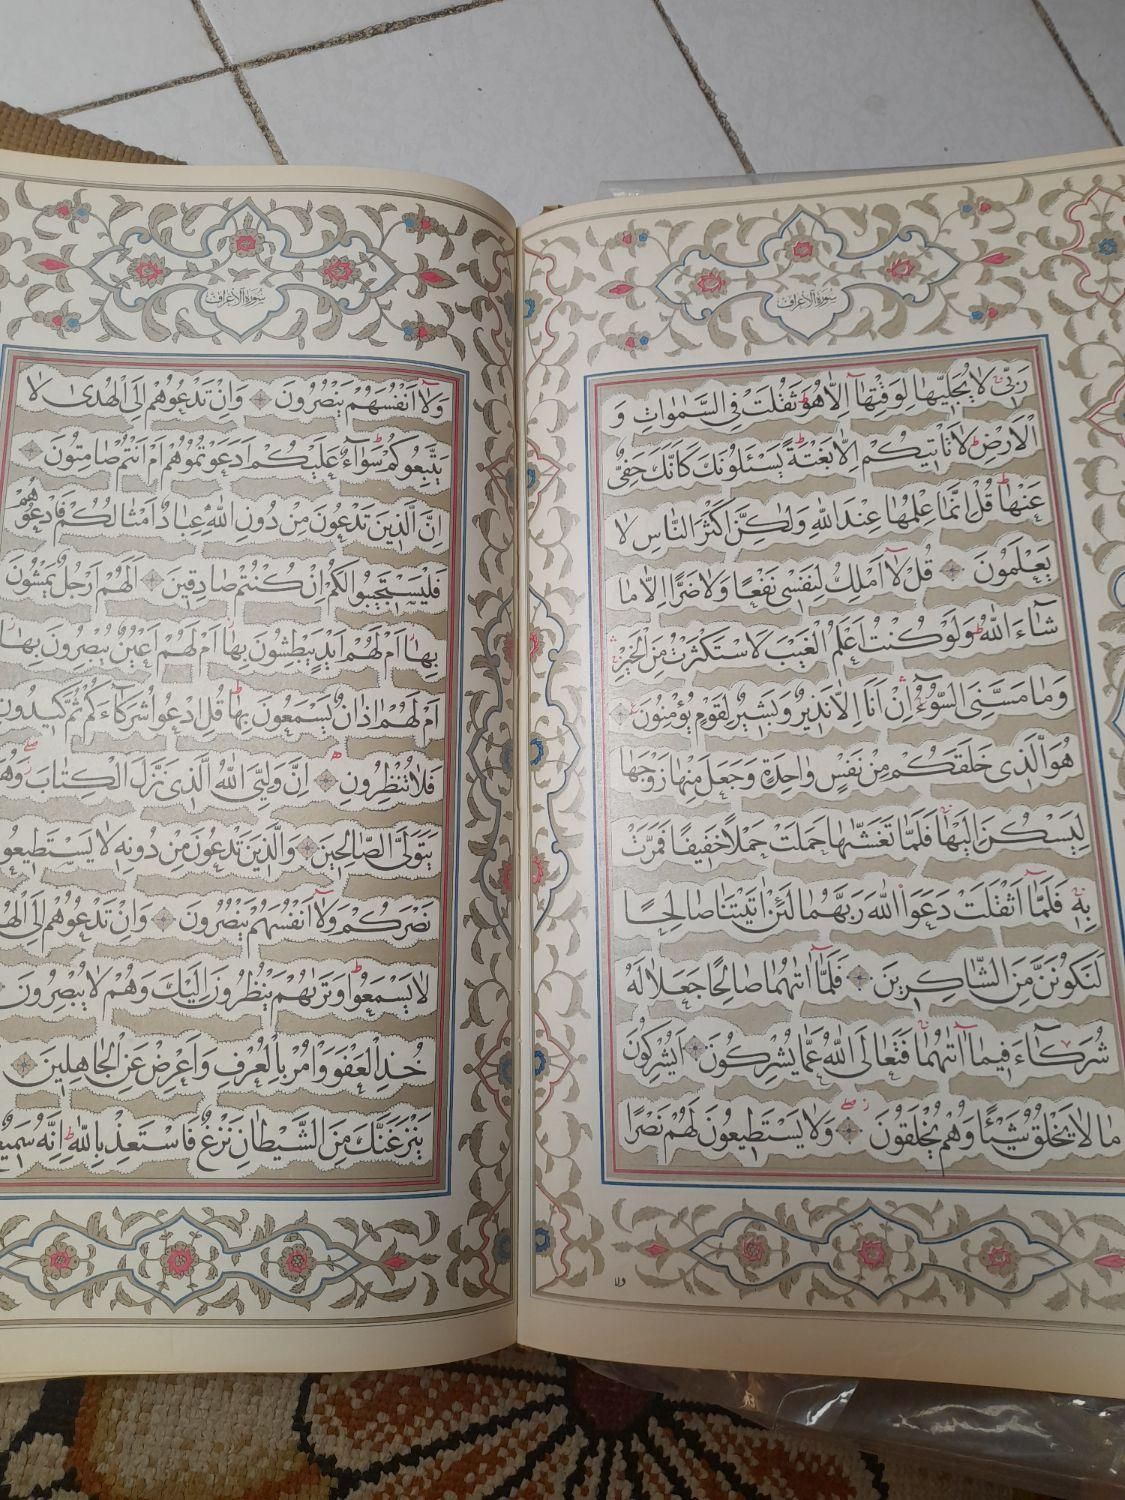 سُورَةُ الْأَعْرَافِ
رَبِّی لَا یُجَلِّیهَا لِوَقْتِهَآ اِلَّا هُوَ ثَقُلَتْ فِی السَّمٰوَاتِ وَ
الْاَرْضِ لَا تَاْتِیكُمْ اِلَّا بَغْتَةً یَسْئَلُونَكَ كَاَنَّكَ حَفِیٌّ
عَنْهَا قُلْ اِنَّمَا عِلْمُهَا عِنْدَ اللّٰهِ وَلٰكِنَّ اَكْثَرَ النَّاسِ لَا
یَعْلَمُونَ قُلْ لَآ اَمْلِكُ لِنَفْسِی نَفْعًا وَلَا ضَرًّا اِلَّا مَا
شَآءَ اللّٰهُ وَلَوْ كُنْتُ اَعْلَمُ الْغَیْبَ لَاسْتَكْثَرْتُ مِنَ الْخَیْرِ
وَمَا مَسَّنِیَ السُّوٓءُ اِنْ اَنَا اِلَّا نَذِیرٌ وَبَشِیرٌ لِقَوْمٍ یُؤْمِنُونَ
هُوَ الَّذِی خَلَقَكُمْ مِنْ نَفْسٍ وَاحِدَةٍ وَجَعَلَ مِنْهَا زَوْجَهَا
لِیَسْكُنَ اِلَیْهَا فَلَمَّا تَغَشّٰیهَا حَمَلَتْ حَمْلًا خَفِیفًا فَمَرَّتْ
بِهٖ فَلَمَّآ اَثْقَلَتْ دَعَوَا اللّٰهَ رَبَّهُمَا لَئِنْ اٰتَیْتَنَا صَالِحًا
لَنَكُونَنَّ مِنَ الشَّاكِرِینَ فَلَمَّآ اٰتٰیهُمَا صَالِحًا جَعَلَا لَهُ
شُرَكَآءَ فِیمَآ اٰتٰیهُمَا فَتَعَالَی اللّٰهُ عَمَّا یُشْرِكُونَ اَیُشْرِكُونَ
مَا لَا یَخْلُقُ شَیْئًا وَهُمْ یُخْلَقُونَ وَلَا یَسْتَطِیعُونَ لَهُمْ نَصْرًا
ولا
سُورَةُ الْأَعْرَافِ
وَلَآ اَنْفُسَهُمْ یَنْصُرُونَ وَاِنْ تَدْعُوهُمْ اِلَی الْهُدٰی لَا
یَتَّبِعُوكُمْ سَوَآءٌ عَلَیْكُمْ اَدَعَوْتُمُوهُمْ اَمْ اَنْتُمْ صَامِتُونَ
اِنَّ الَّذِینَ تَدْعُونَ مِنْ دُونِ اللّٰهِ عِبَادٌ اَمْثَالُكُمْ فَادْعُوهُمْ
فَلْیَسْتَجِیبُوا لَكُمْ اِنْ كُنْتُمْ صَادِقِینَ اَلَهُمْ اَرْجُلٌ یَمْشُونَ
بِهَا اَمْ لَهُمْ اَیْدٍ یَبْطِشُونَ بِهَا اَمْ لَهُمْ اَعْیُنٌ یُبْصِرُونَ بِهَا
اَمْ لَهُمْ اٰذَانٌ یَسْمَعُونَ بِهَا قُلِ ادْعُوا شُرَكَآءَكُمْ ثُمَّ كِیدُونِ
فَلَا تُنْظِرُونِ اِنَّ وَلِیِّیَ اللّٰهُ الَّذِی نَزَّلَ الْكِتَابَ وَهُوَ
یَتَوَلَّی الصَّالِحِینَ وَالَّذِینَ تَدْعُونَ مِنْ دُونِهٖ لَا یَسْتَطِیعُو
نَصْرَكُمْ وَلَآ اَنْفُسَهُمْ یَنْصُرُونَ وَاِنْ تَدْعُوهُمْ اِلَی
لَا یَسْمَعُوا وَتَرٰیهُمْ یَنْظُرُونَ اِلَیْكَ وَهُمْ لَا یُبْصِرُونَ
خُذِ الْعَفْوَ وَاْمُرْ بِالْعُرْفِ وَاَعْرِضْ عَنِ الْجَاهِلِینَ
یَنْزَغَنَّكَ مِنَ الشَّیْطَانِ نَزْغٌ فَاسْتَعِذْ بِاللّٰهِ اِنَّهُ سَمِیعٌ